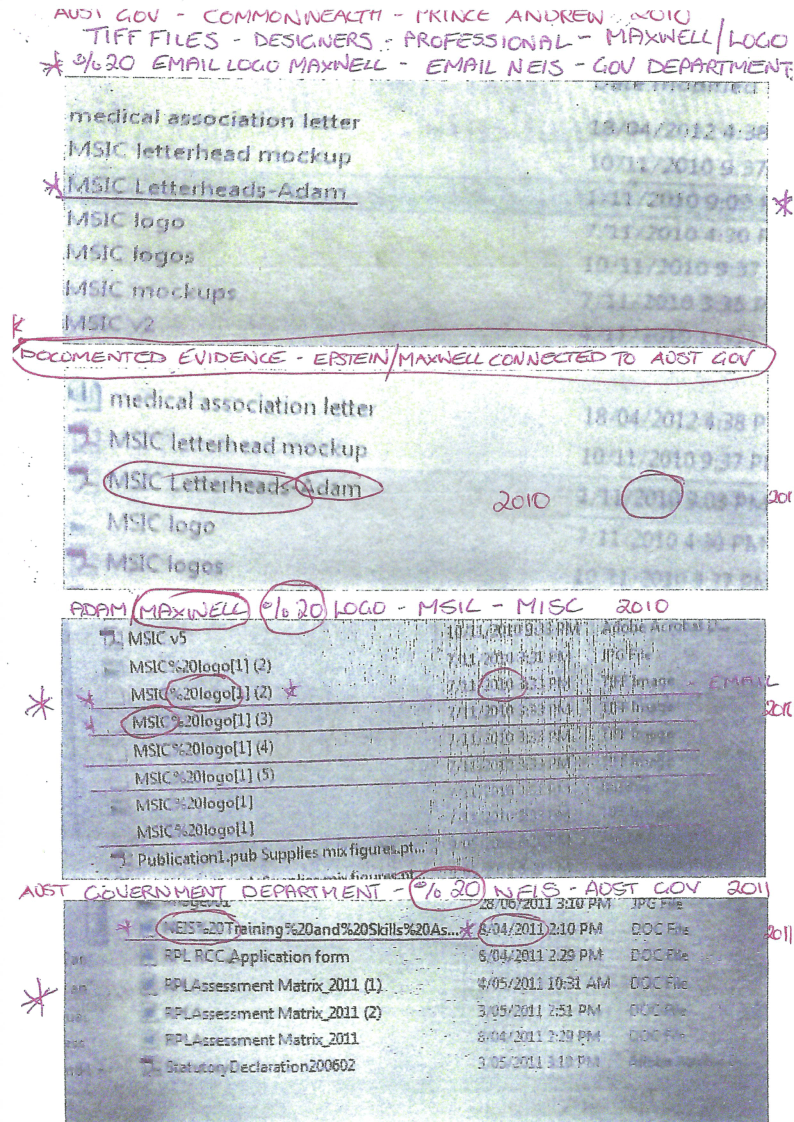 AUST GOV - COMMONWEALTH - PRINCE ANDREW 2010
TIFF FILES - DESIGNERS - PROFESSIONAL - MAXWELL/LOGO
* %20 EMAIL LOGO MAXWELL - EMAIL NEIS - GOV DEPARTMENT
Date modified
medical association letter 18/04/2012 4:38
MSIC letterhead mockup 10/11/2010 9:37
* MSIC Letterheads-Adam 1/11/2010 9:03 *
MSIC logo 7/11/2010 4:30 P
MSIC logos 10/11/2010 9:37
MSIC mockups 7/11/2010 3:35 P
MSIC v2
DOCUMENTED EVIDENCE - EPSTEIN/MAXWELL CONNECTED TO AUST GOV
medical association letter 18/04/2012 4:38 P
MSIC letterhead mockup 10/11/2010 9:37 P
MSIC Letterheads-Adam 2010 1/11/2010 9:03 PM 201
MSIC logo 7/11/2010 4:30 PM
MSIC logos 10/11/2010 9:37 PM
ADAM MAXWELL %20 LOGO - MSIL - MISC 2010
MSIC v5 10/11/2010 9:33 PM Adobe Acrobat D...
MSIC%20logo[1] (2) 7/11/2010 3:31 PM JPG File
* MSIC%20logo[1] (2) * 7/11/2010 3:33 PM TIFF Image - EMAIL
* MSIC%20logo[1] (3) 7/11/2010 3:33 PM TIFF Image 2010
MSIC%20logo[1] (4) 7/11/2010 3:33 PM TIFF Image
MSIC%20logo[1] (5) 7/11/2010 3:33 PM
MSIC%20logo[1]
MSIC%20logo[1]
Publication1.pub Supplies mix figures.pt...
AUST GOVERNMENT DEPARTMENT - %20 NEIS - AUST GOV 2011
28/06/2011 3:10 PM JPG File
* NEIS%20Training%20and%20Skills%20As... * 8/04/2011 2:10 PM DOC File 2011
RPL RCC Application form 6/04/2011 2:29 PM DOC File
RPLAssessment Matrix_2011 (1) 4/05/2011 10:31 AM DOC File
RPLAssessment Matrix_2011 (2) 3/05/2011 2:51 PM DOC File
RPLAssessment Matrix_2011 8/04/2011 2:29 PM DOC File
StatutoryDeclaration200602 3/05/2011 3:10 PM